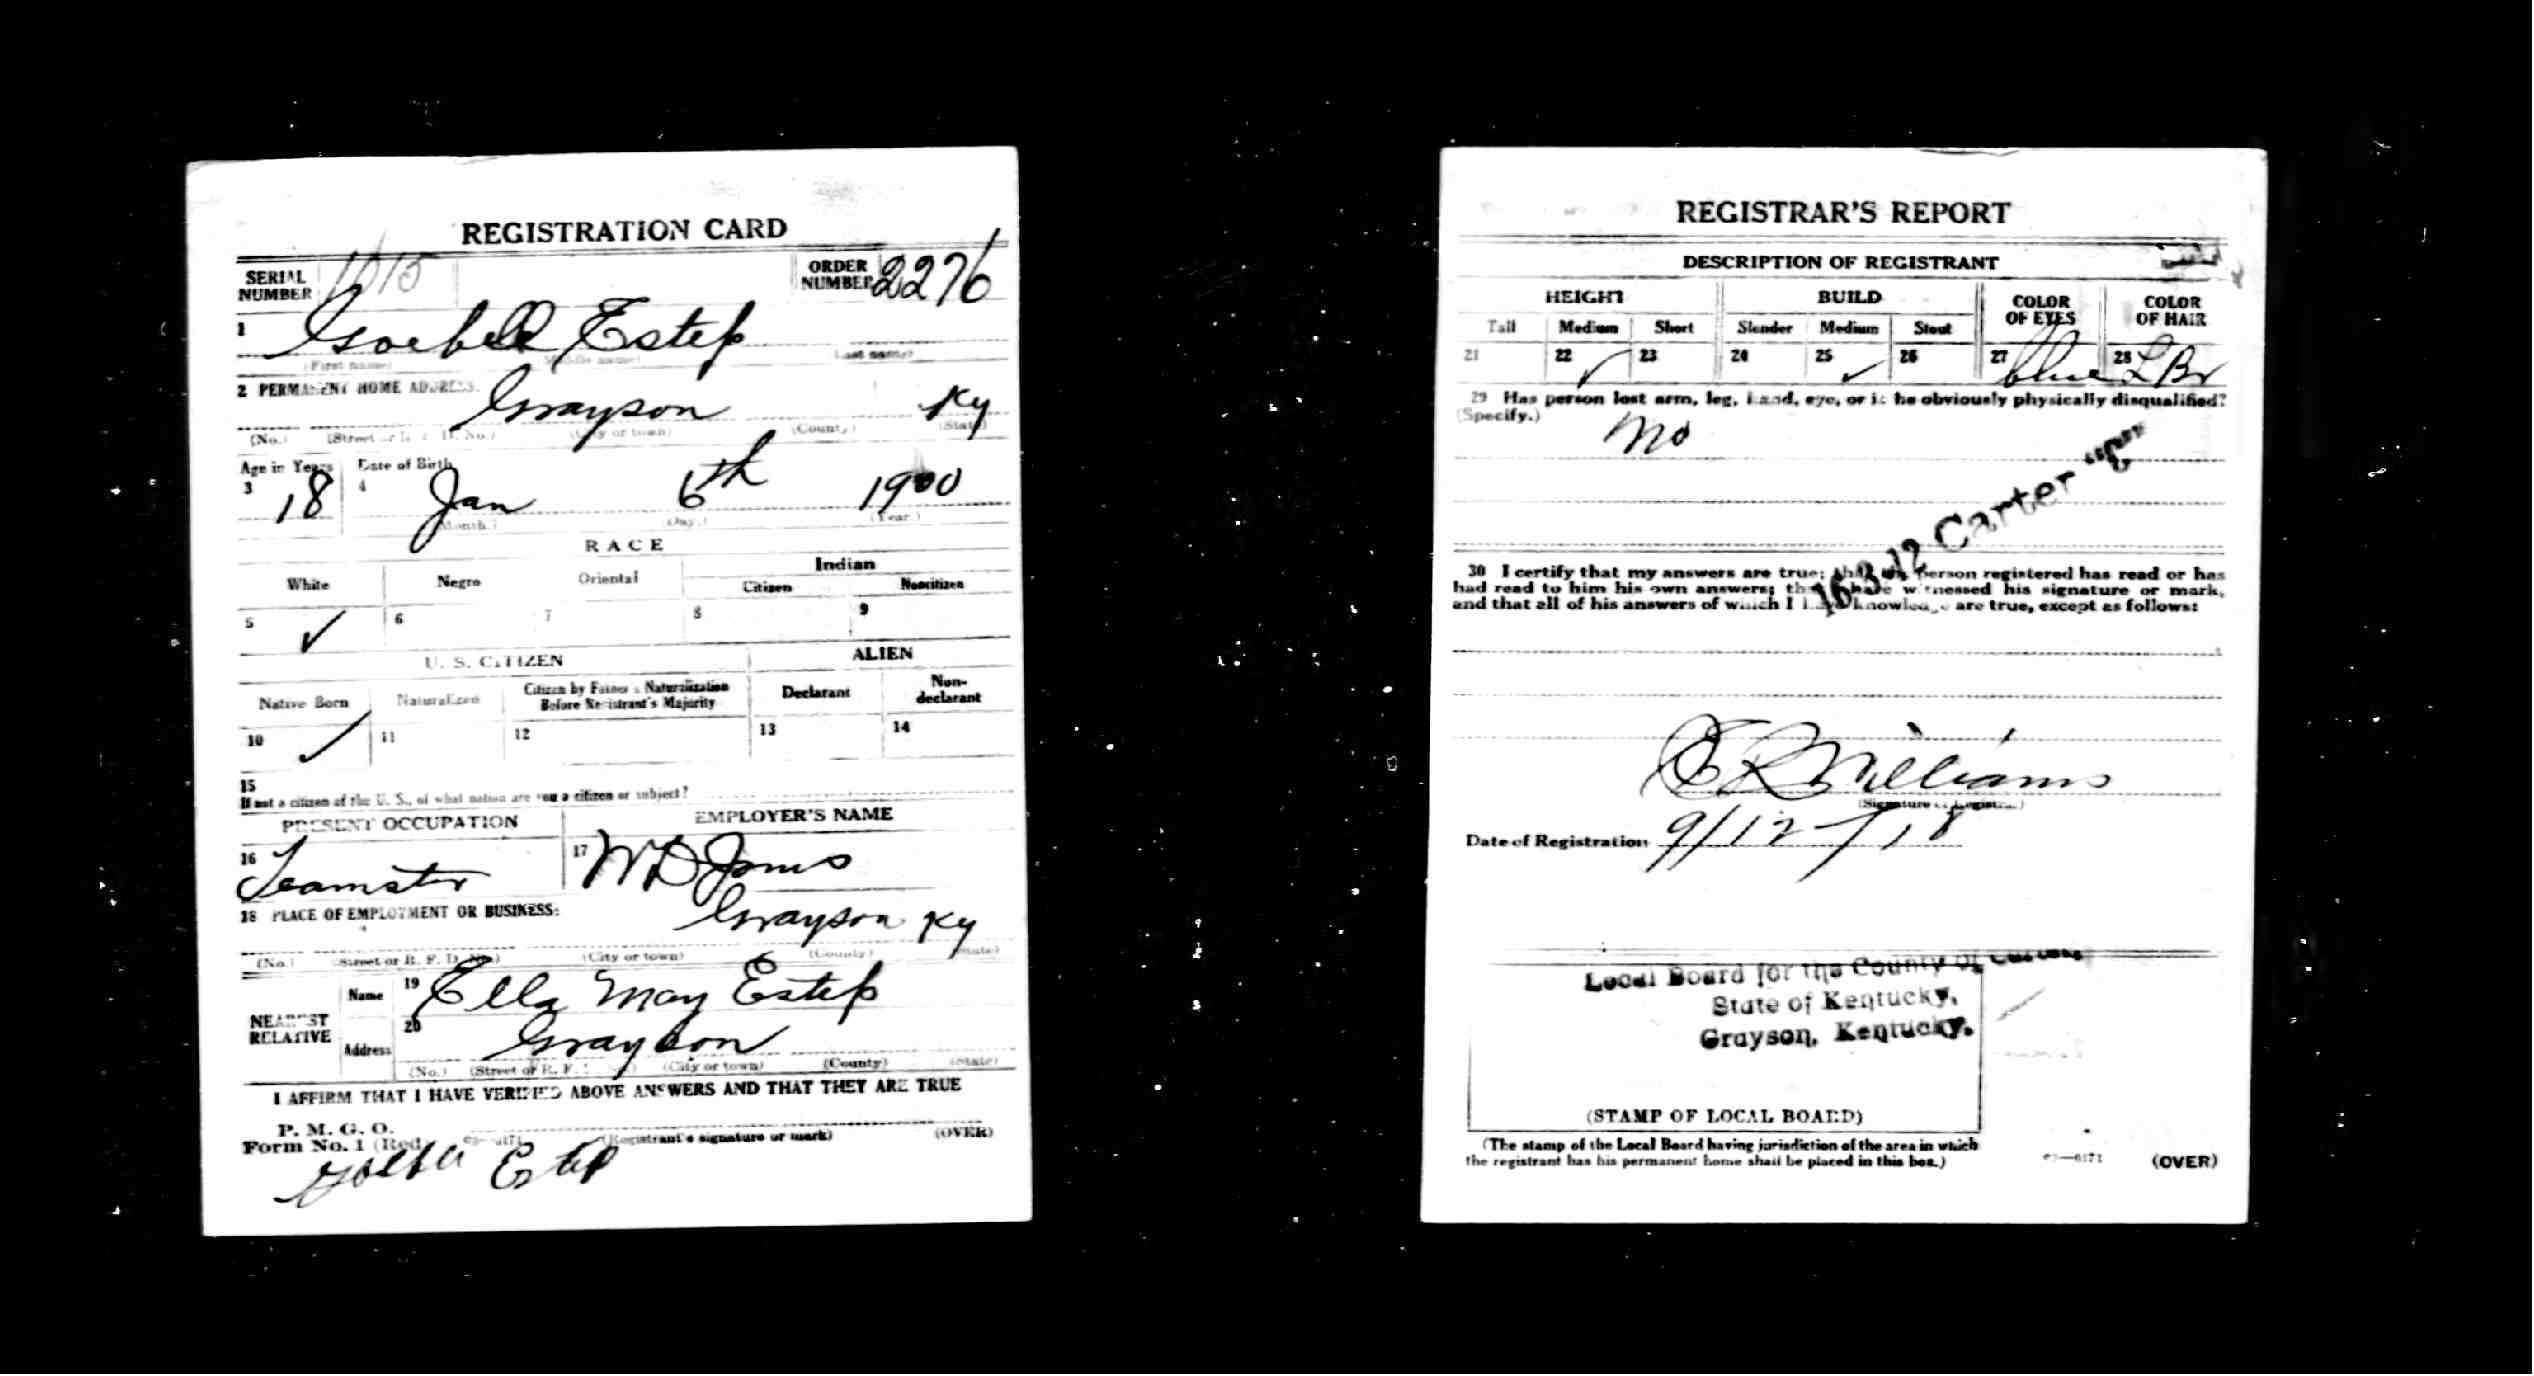 REGISTRATION CARD
SERIAL NUMBER 1015 ORDER NUMBER 2276
1 Goebell Estep
(First name) (Middle name) (Last name)
2 PERMANENT HOME ADDRESS:
Grayson Ky
(No.) (Street or R. F. D. No.) (City or town) (County) (State)
Age in Years Date of Birth
3 18 4 Jan 6th 1900
(Month.) (Day.) (Year.)
RACE
White Negro Oriental Indian
Citizen Noncitizen
5 ✓ 6 7 8 9
U. S. CITIZEN ALIEN
Native Born Naturalized Citizen by Father's Naturalization Before Registrant's Majority Declarant Non-declarant
10 ✓ 11 12 13 14
15
If not a citizen of the U. S., of what nation are you a citizen or subject?
PRESENT OCCUPATION EMPLOYER'S NAME
16 Teamster 17 WD Jones
18 PLACE OF EMPLOYMENT OR BUSINESS:
Grayson Ky
(No.) (Street or R. F. D. No.) (City or town) (County) (State)
NEAREST RELATIVE
Name 19 Ella May Estep
Address 20 Grayson
(No.) (Street or R. F. D. No.) (City or town) (County) (State)
I AFFIRM THAT I HAVE VERIFIED ABOVE ANSWERS AND THAT THEY ARE TRUE
P. M. G. O.
Form No. 1 (Red) (Registrant's signature or mark) (OVER)
Estep
REGISTRAR'S REPORT
DESCRIPTION OF REGISTRANT
HEIGHT BUILD COLOR OF EYES COLOR OF HAIR
Tall Medium Short Slender Medium Stout
21 22 ✓ 23 24 25 ✓ 26 27 blue 28 L Br
29 Has person lost arm, leg, hand, eye, or is he obviously physically disqualified?
(Specify.)
No
16-3-12 Carter "C"
30 I certify that my answers are true; that the person registered has read or has
had read to him his own answers; that I have witnessed his signature or mark,
and that all of his answers of which I have knowledge are true, except as follows:
E R Williams
(Signature of Registrar)
Date of Registration 9/12-/18
Local Board for the County of Carter,
State of Kentucky,
Grayson, Kentucky.
(STAMP OF LOCAL BOARD)
(The stamp of the Local Board having jurisdiction of the area in which
the registrant has his permanent home shall be placed in this box.)
03—6171 (OVER)